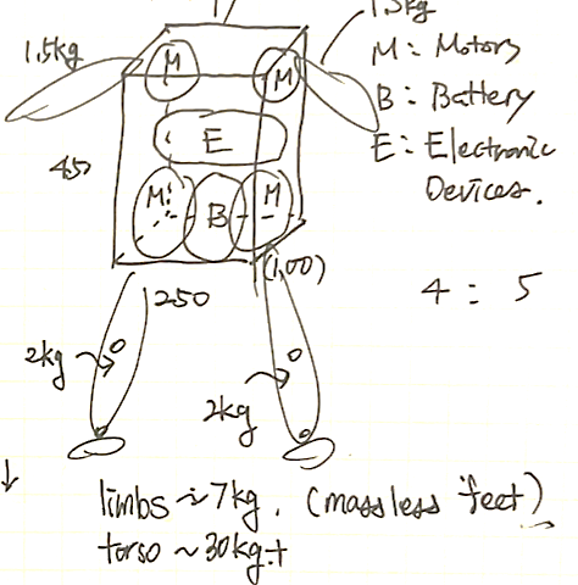 1.5kg
1.5kg
M: Motors
B: Battery
E: Electronic
Devices.
M
M
E
450
M
B
M
(1,00)
250
4 : 5
2kg
2kg
limbs ~ 7kg. (massless feet)
torso ~ 30kg.+